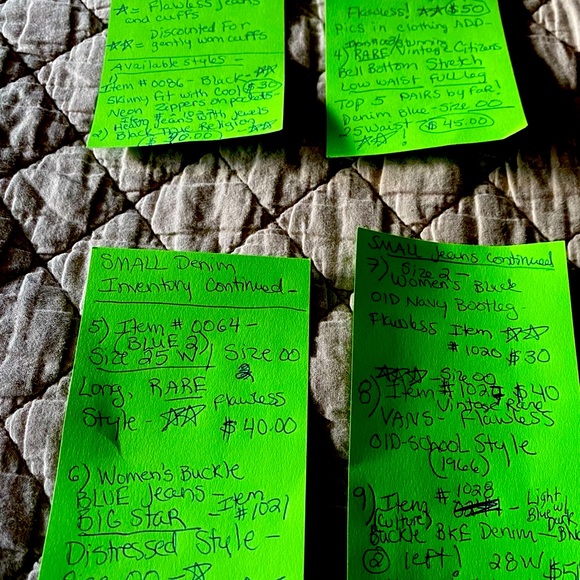 ☆ = Flawless Jeans
and cuffs
Discounted For
☆☆ = gently worn cuffs
Available styles -
1)
Item # 0086 - Black - ☆☆
Skinny Fit with Cool $30
Neon Zippers on pockets
Jeans with Jewels
2) Black True Religion - ☆☆
Flawless! ☆☆ $50
Pics in clothing ADD-
4) RARE/Vintage Citizens
Bell Bottom Stretch
Low WAIST Full leg
TOP 5 PAIRS by far!
Denim Blue - Size 00
25 Waist $45.00
☆☆
SMALL Denim
Inventory Continued -
5) Item # 0064 -
(BLUE 2)
Size 25 W / Size 00
Long, RARE
Style - ☆☆ Flawless
$40.00
6) Women's Buckle
BLUE Jeans - Item
BIG STAR # 1021
Distressed Style -
Size 00 - ☆
SMALL Jeans Continued
7) Size 2 -
Women's Black
Old Navy Bootleg -
Flawless Item ☆☆
# 1020 $30
☆☆☆ - Size 00
8) Item # $40
Vintage Rare
VANS - Flawless
Old-School Style
(1966)
9) Item # 1028 - Light
(Culture) Blue
Buckle BKE Denim
② left! 28W